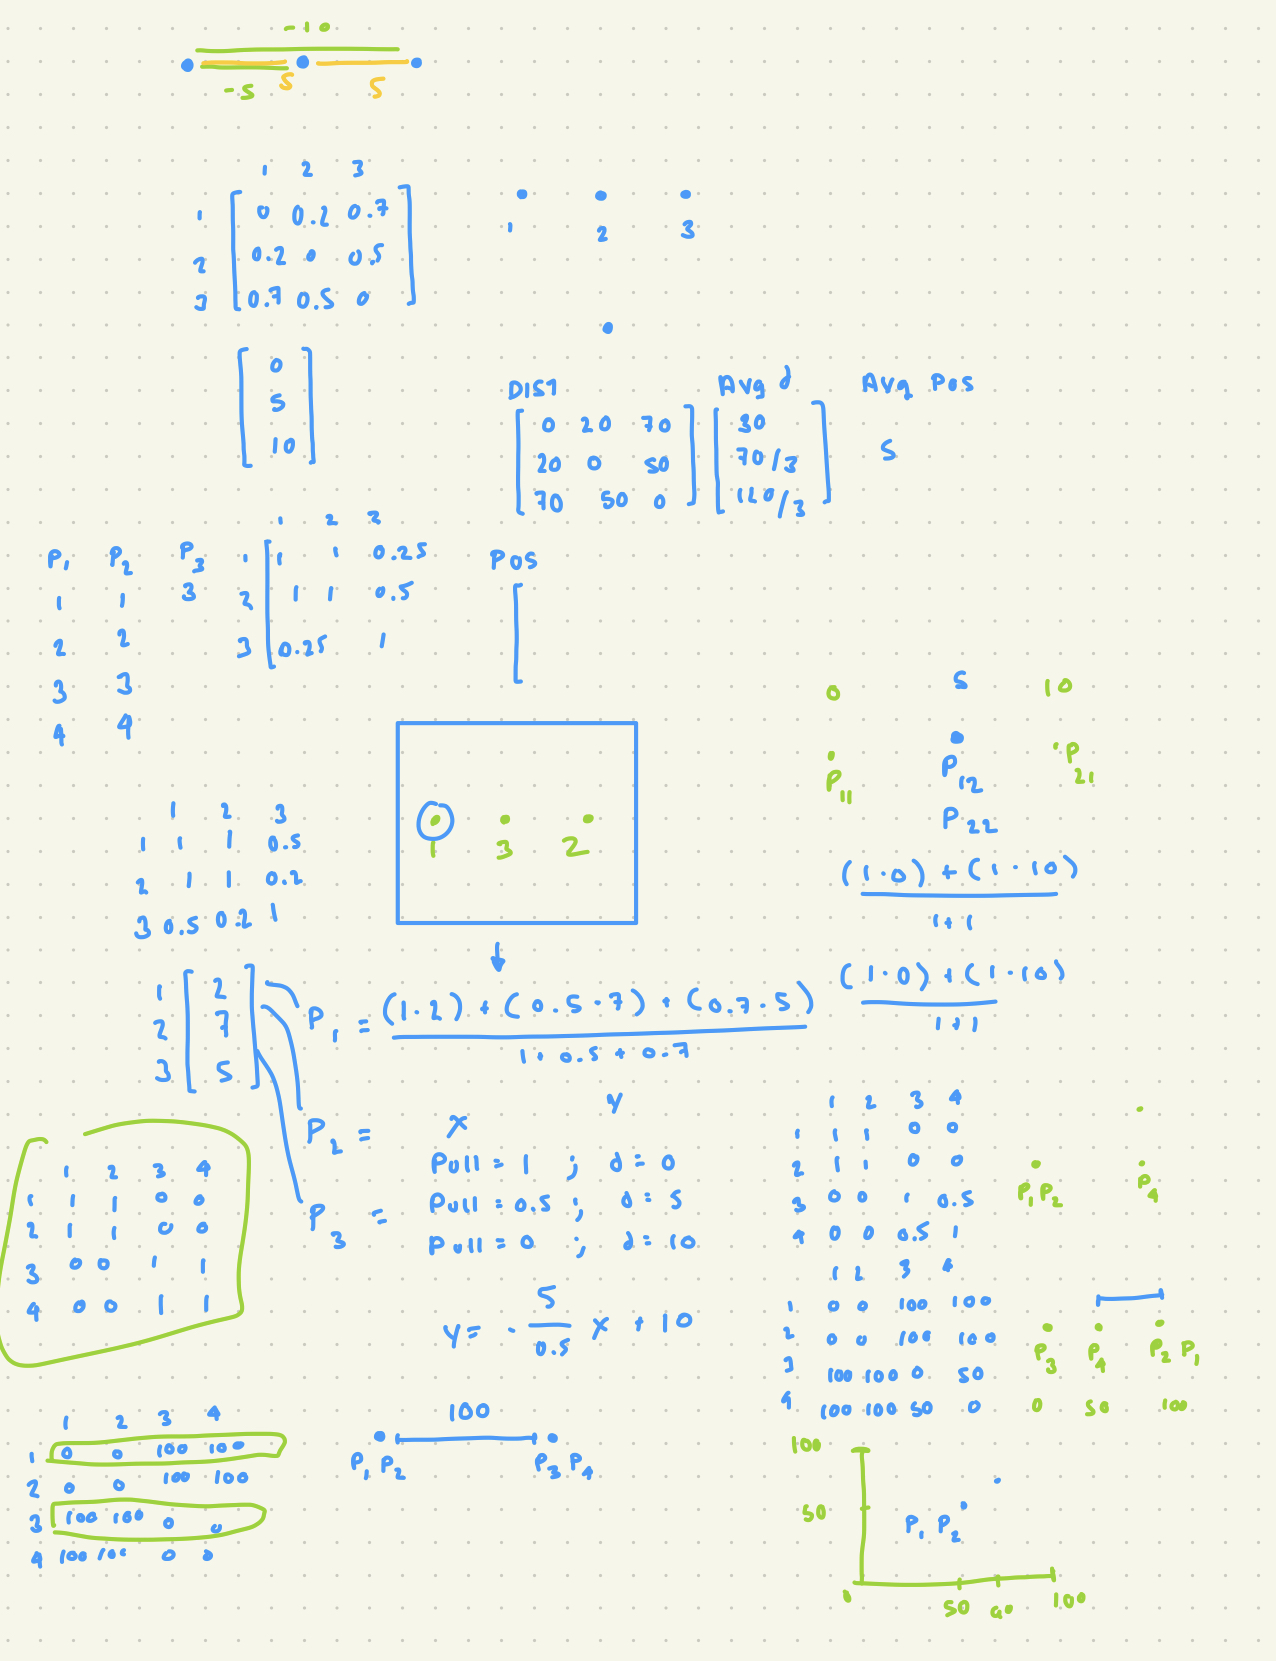 -10
-5 5 5
1 2 3
1 0 0.2 0.7
2 0.2 0 0.5
3 0.7 0.5 0
1 2 3
0
5
10
DIST Avg d Avg Pos
0 20 70 30
20 0 50 70/3 5
70 50 0 120/3
1 2 3
P1 P2 P3 1 1 1 0.25 Pos
1 1 3 2 1 1 0.5
2 2 3 0.25 1
3 3
4 4
0 5 10
P11 P12 P21
P22
1 2 3
1 1 1 0.5
2 1 1 0.2
3 0.5 0.2 1
1 3 2
(1·0) + (1·10)
1+1
(1·0) + (1·10)
1+1
1 2
2 7
3 5
P1 = (1·2) + (0.5·7) + (0.7·5)
1+0.5+0.7
P2 =
P3 =
x y
Pull=1 ; d=0
Pull=0.5 ; d=5
Pull=0 ; d=10
y= - 5/0.5 x + 10
1 2 3 4
1 1 1 0 0
2 1 1 0 0
3 0 0 1 1
4 0 0 1 1
1 2 3 4
1 1 1 0 0
2 1 1 0 0
3 0 0 1 0.5
4 0 0 0.5 1
P1 P2 P4
1 2 3 4
1 0 0 100 100
2 0 0 100 100
3 100 100 0 50
4 100 100 50 0
P3 P4 P2 P1
0 50 100
1 2 3 4
1 0 0 100 100
2 0 0 100 100
3 100 100 0 0
4 100 100 0 0
100
P1 P2 P3 P4
100
50
P1 P2
0 50 90 100